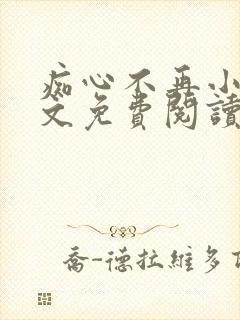 痴心不再小
文免費閱讀
喬-德拉維多